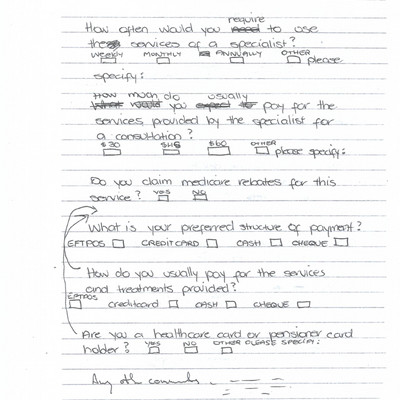 How often would you require to use
the services of a specialist?
WEEKLY MONTHLY ANNUALLY OTHER please
specify:
How much do usually
you pay for the
services provided by the specialist for
a consultation?
$30 $45 $60 OTHER please specify:
Do you claim medicare rebates for this
service? YES NO
What is your preferred structure of payment?
EFTPOS CREDIT CARD CASH CHEQUE
How do you usually pay for the services
and treatments provided?
EFTPOS creditcard CASH CHEQUE
Are you a healthcare card or pensioner card
holder? YES NO OTHER PLEASE SPECIFY:
Any other comments